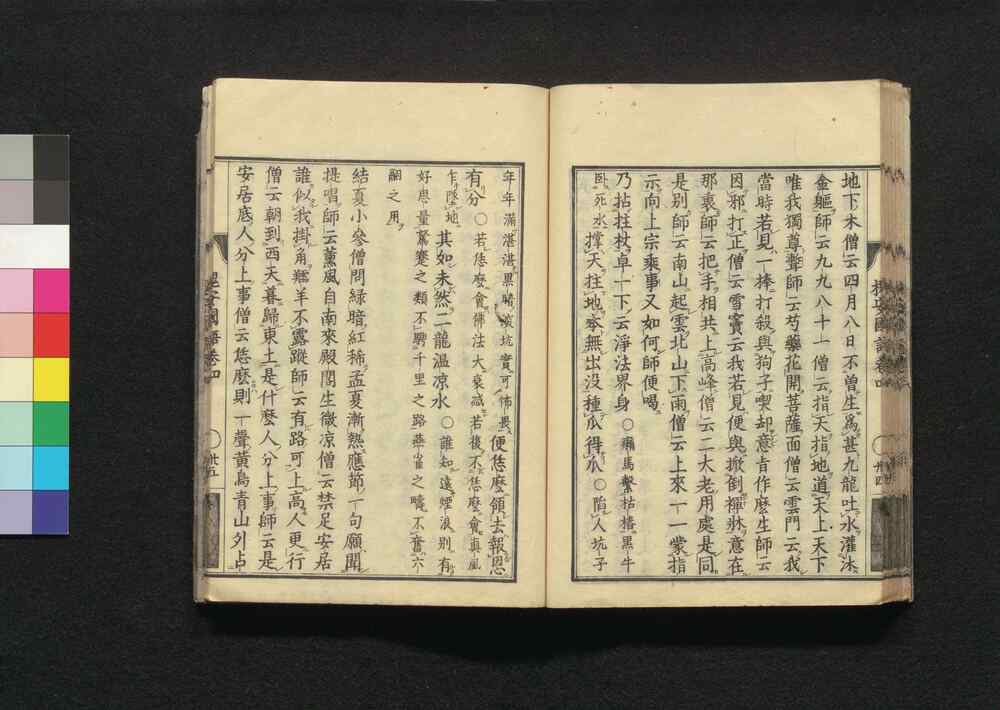 地下木僧云四月八日不曽生爲甚九龍吐水灌沐
金軀師云九九八十一僧云指天指地道天上天下
唯我獨尊聻師云芍藥花開菩薩面僧云雲門云我
當時若見一棒打殺與狗子喫却意旨作麼生師云
因邪打正僧云雪竇云我若見便與掀倒禪牀意在
那裏師云把手相共上高峰僧云二大老用處是同
是別師云南山起雲北山下雨僧云上來一一蒙指
示向上宗乘事又如何師便喝
乃拈拄杖卓一下云淨法界身○癩馬繫枯樁黒牛
臥死水撑天拄地本無出没種瓜得瓜○陷人坑子
年年滿湛湛黒暗坑實可怖畏便恁麼領去報恩
有分○若恁麼會佛法大衰滅若後不恁麼會真風
乍墜地其如未然二龍温凉水○誰知遠煙浪別有
好思量駑蹇之類不騁千里之路燕雀之疇不奮六
翮之用
結夏小參僧問緑暗紅稀孟夏漸熱應節一句願聞
提唱師云薫風自南來殿閣生微凉僧云禁足安居
誰似我掛角羚羊不露蹤師云有路可上高人更行
僧云朝到西天暮歸東土是什麼人分上事師云是
安居底人分上事僧云恁麼則一聲黄鳥青山外占
國語卷四
廿五
廿四